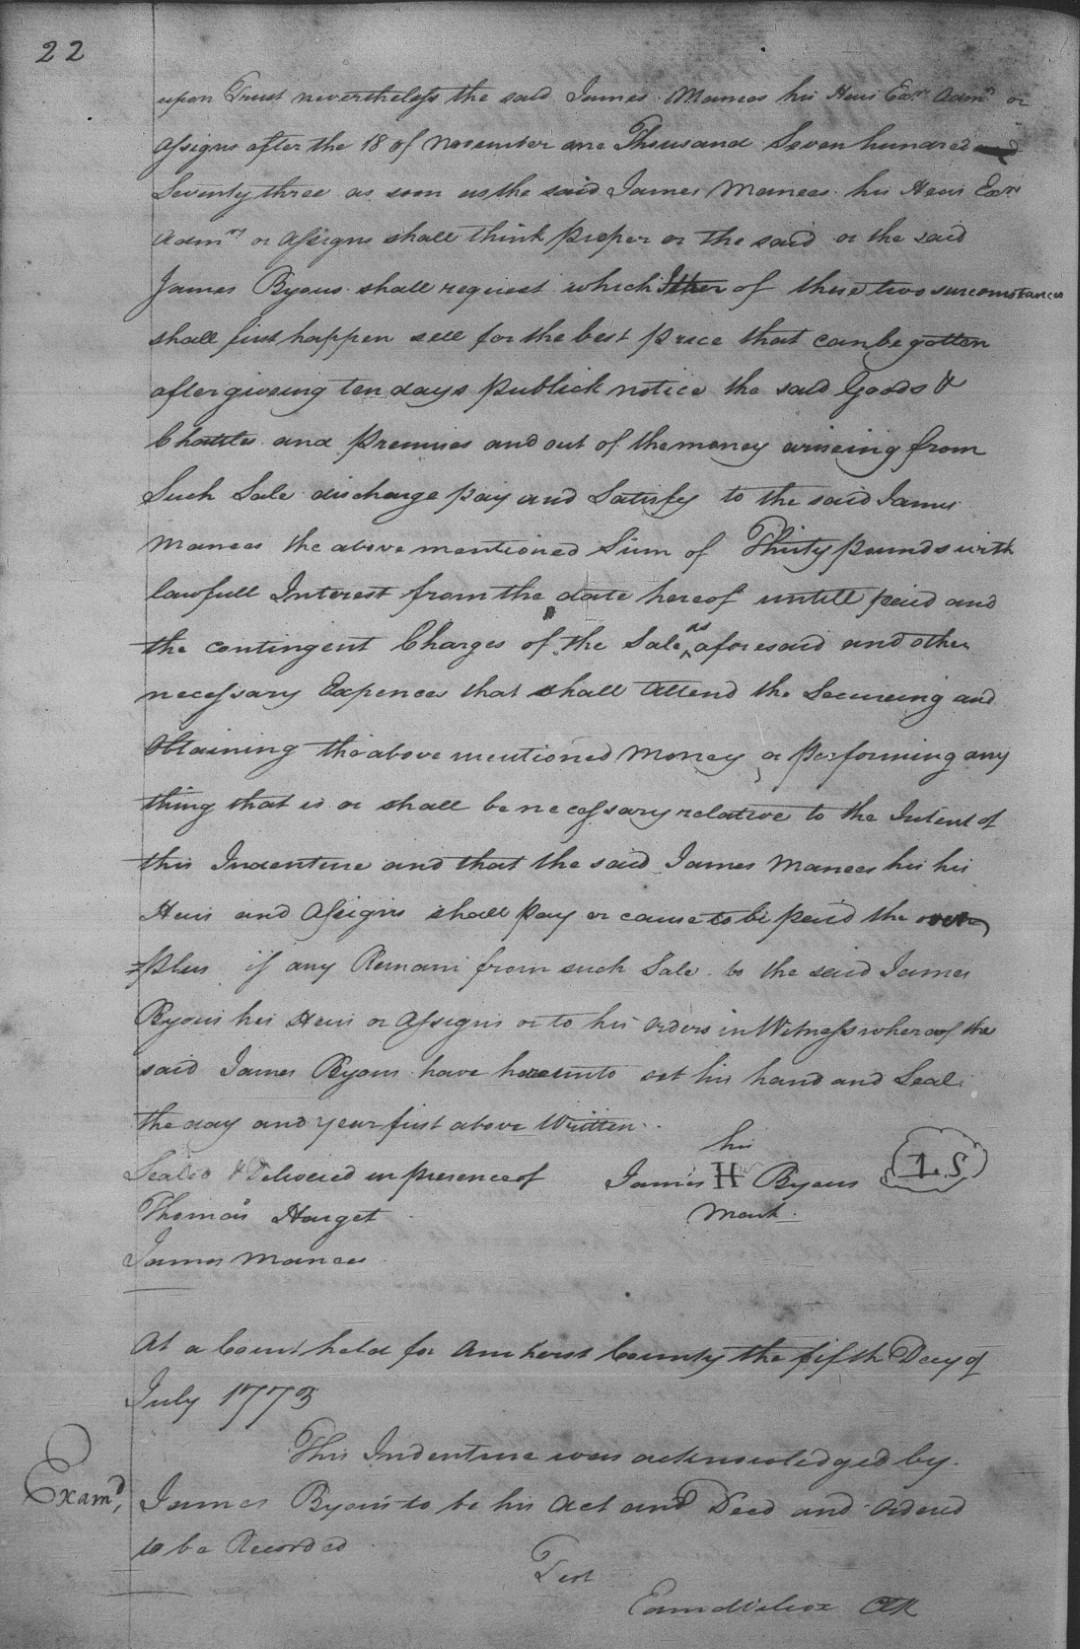 22
upon Trust nevertheless the said James Manees his Heirs Exrs Admrs or
assigns after the 18 of November one Thousand Seven hundred and
Seventy three as soon as the said James Manees his Heirs Exrs
Admrs or assigns shall think proper or the said or the said
James Byous shall request which of these two surcomstances
shall first happen sell for the best price that can be gotten
after giveing ten days publick notice the said Goods &
Chattles and premises and out of the money ariseing from
Such Sale discharge pay and Satisfy to the said James
Manees the above mentioned Sum of Thirty pounds with
lawfull Interest from the date hereof untill paid and
the contingent Charges of the Sale as aforesaid and other
necessary Expences that shall attend the Secureing and
Obtaining the above mentioned money or performing any
thing that is or shall be necessary relative to the Intent of
this Indenture and that the said James Manees his his
Heirs and assigns shall pay or cause to be paid the over
=plus if any Remain from such Sale to the said James
Byous his Heirs or assigns or to his orders in Witness whereof the
said James Byous have hereunto set his hand and Seal
the day and year first above Written.
his
Sealed & Delivered in presence of James H Byous L.S
Thomas Harget mark.
James Manees
At a Court held for Amherst County the fifth Day of
July 1773
This Indenture was acknowledged by
Examd, James Byous to be his act and Deed and ordered
to be Recorded
Test
Edmd Wilcox Clk